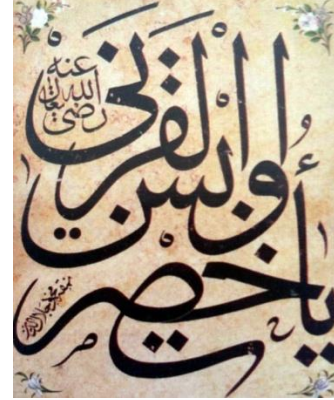 يا حضرت
أويس القرني
رضي الله تعالى عنه